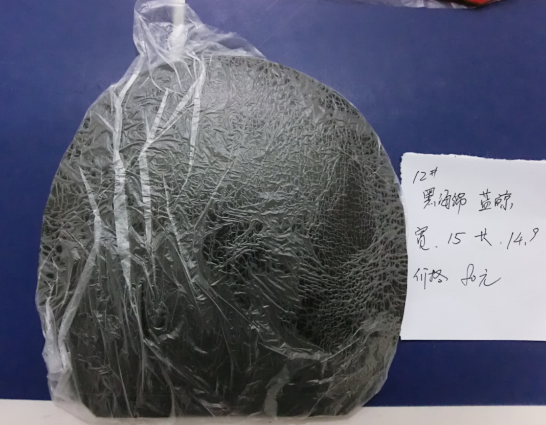 12#
黑海绵 蓝晾
宽.15 长.14.9
价格 80元